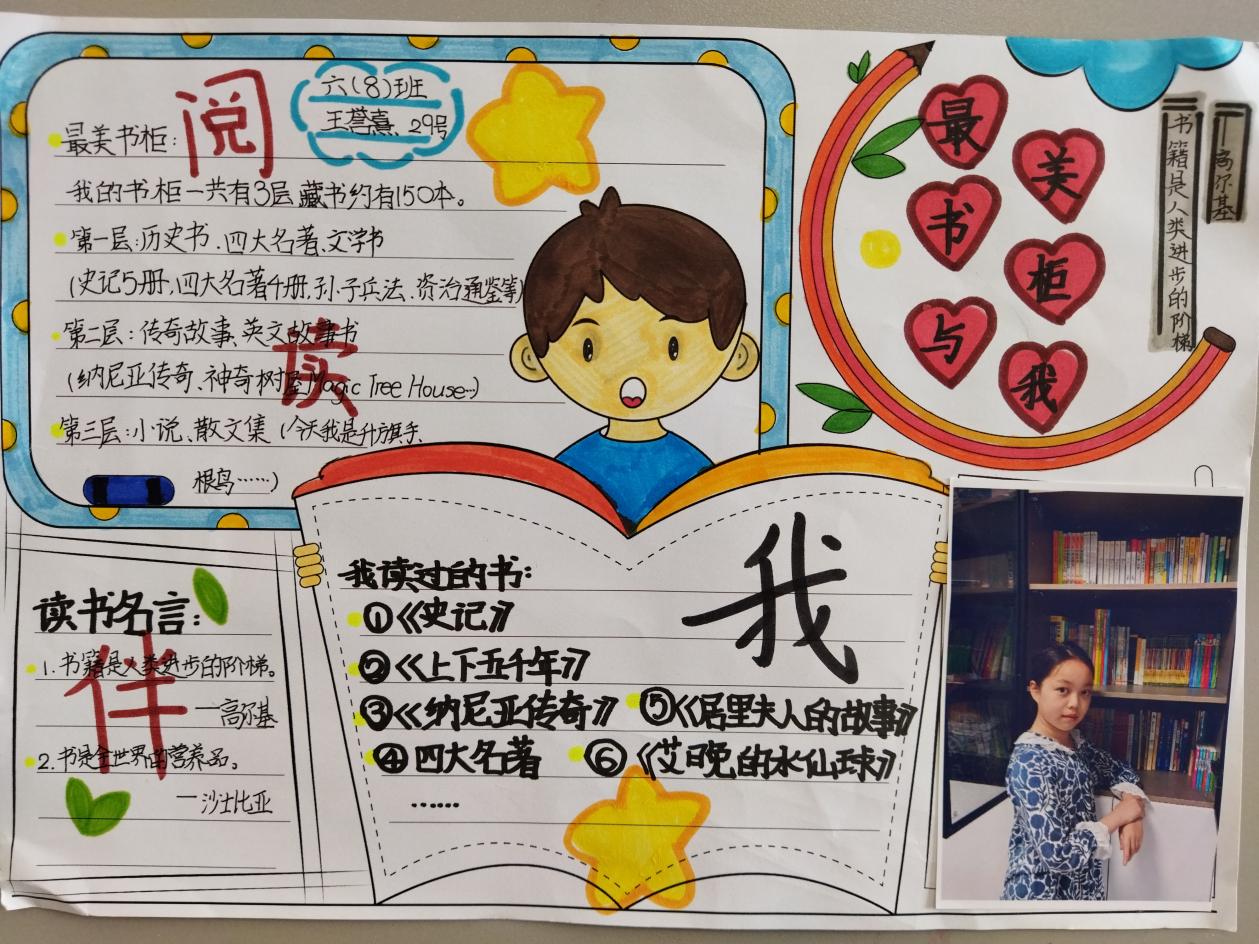 阅
六(8)班
王誉熹 29号
最美书柜:
我的书柜一共有3层藏书约有150本。
第一层:历史书、四大名著、文学书
(史记5册、四大名著4册、孙子兵法、资治通鉴等)
第二层:传奇故事、英文故事书
读
(纳尼亚传奇、神奇树屋Magic Tree House…)
第三层:小说、散文集(今天我是升旗手、
根鸟……)
最
美
书
柜
与
我
书籍是人类进步的阶梯
—高尔基
读书名言:
伴
1.书籍是人类进步的阶梯。
—高尔基
2.书是全世界的营养品。
—沙士比亚
我
我读过的书:
①《史记》
②《上下五千年》
③《纳尼亚传奇》 ⑤《居里夫人的故事》
④四大名著 ⑥《艾晚的水仙球》
……